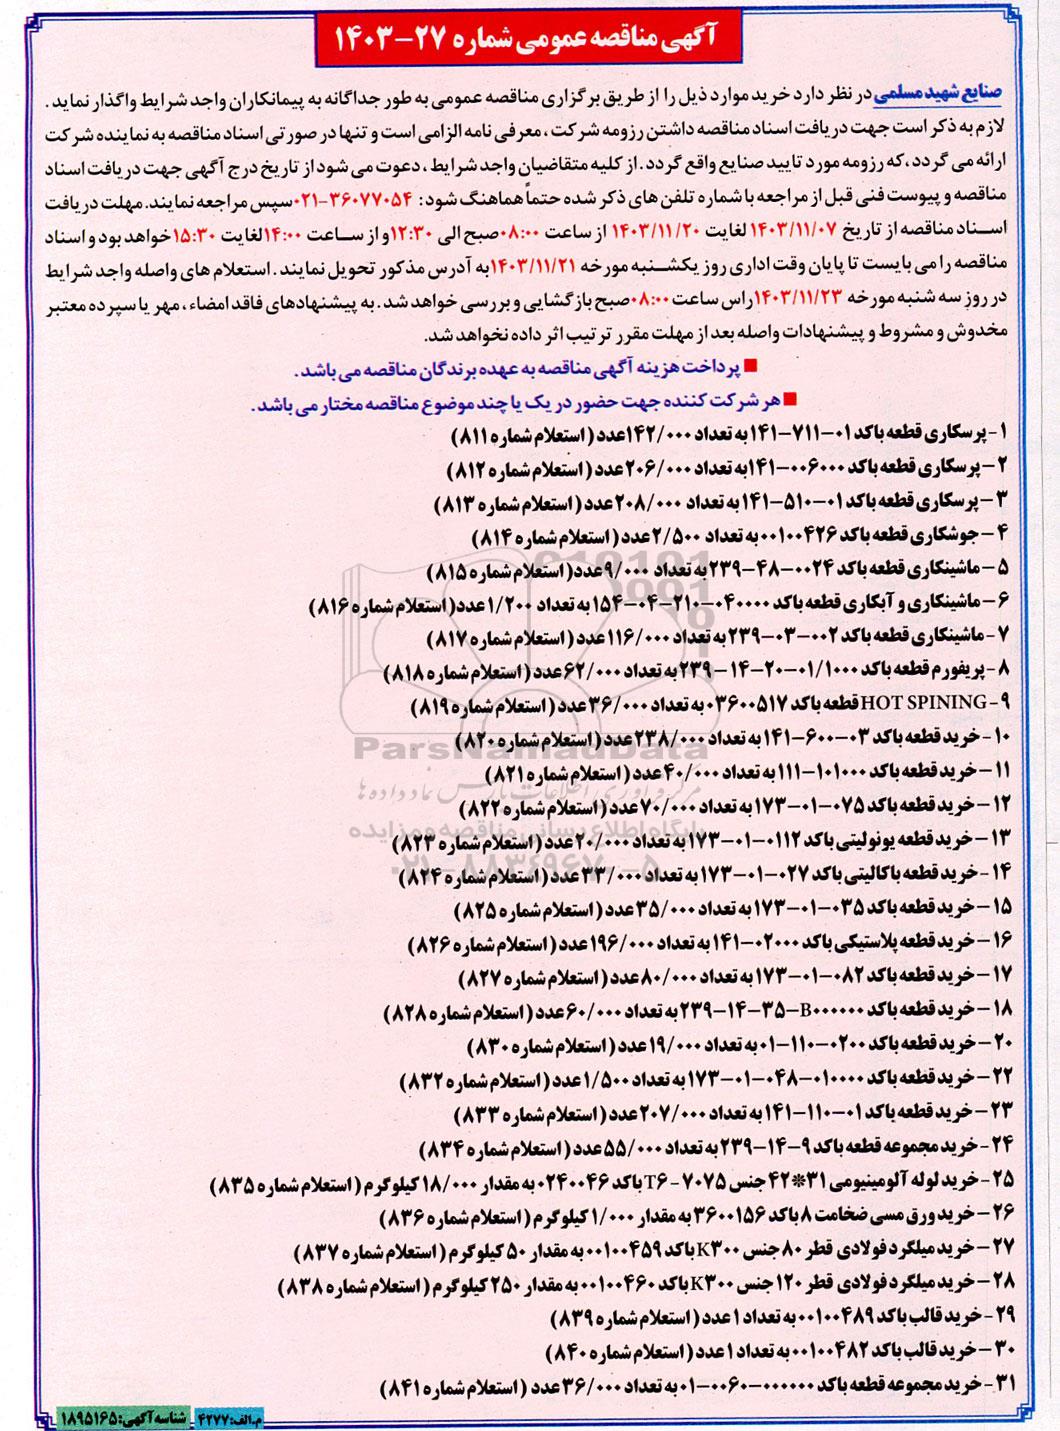 آگهی مناقصه عمومی شماره ۲۷-۱۴۰۳
صنایع شهید مسلمی در نظر دارد خرید موارد ذیل را از طریق برگزاری مناقصه عمومی به طور جداگانه به پیمانکاران واجد شرایط واگذار نماید.
لازم به ذکر است جهت دریافت اسناد مناقصه داشتن رزومه شرکت، معرفی نامه الزامی است و تنها در صورتی اسناد مناقصه به نماینده شرکت
ارائه می گردد، که رزومه مورد تایید صنایع واقع گردد. از کلیه متقاضیان واجد شرایط، دعوت می شود از تاریخ درج آگهی جهت دریافت اسناد
مناقصه و پیوست فنی قبل از مراجعه با شماره تلفن های ذکر شده حتماً هماهنگ شود: ۳۶۰۷۷۰۵۴-۰۲۱ سپس مراجعه نمایند. مهلت دریافت
اسناد مناقصه از تاریخ ۱۴۰۳/۱۱/۰۷ لغایت ۱۴۰۳/۱۱/۲۰ از ساعت ۰۸:۰۰ صبح الی ۱۲:۳۰ و از ساعت ۱۴:۰۰ لغایت ۱۵:۳۰ خواهد بود و اسناد
مناقصه را می بایست تا پایان وقت اداری روز یکشنبه مورخه ۱۴۰۳/۱۱/۲۱ به آدرس مذکور تحویل نمایند. استعلام های واصله واجد شرایط
در روز سه شنبه مورخه ۱۴۰۳/۱۱/۲۳ راس ساعت ۰۸:۰۰ صبح بازگشایی و بررسی خواهد شد. به پیشنهادهای فاقد امضاء، مهر یا سپرده معتبر
مخدوش و مشروط و پیشنهادات واصله بعد از مهلت مقرر ترتیب اثر داده نخواهد شد.
■ پرداخت هزینه آگهی مناقصه به عهده برندگان مناقصه می باشد.
■ هر شرکت کننده جهت حضور در یک یا چند موضوع مناقصه مختار می باشد.
۱- پرسکاری قطعه با کد ۰۱-۷۱۱-۱۴۱ به تعداد ۱۴۲/۰۰۰ عدد (استعلام شماره ۸۱۱)
۲- پرسکاری قطعه با کد ۰۰۶۰۰۰-۱۴۱ به تعداد ۲۰۶/۰۰۰ عدد (استعلام شماره ۸۱۲)
۳- پرسکاری قطعه با کد ۰۱-۵۱۰-۱۴۱ به تعداد ۲۰۸/۰۰۰ عدد (استعلام شماره ۸۱۳)
۴- جوشکاری قطعه با کد ۰۰۱۰۰۴۲۶ به تعداد ۲/۵۰۰ عدد (استعلام شماره ۸۱۴)
۵- ماشینکاری قطعه با کد ۰۰۲۴-۴۸-۲۳۹ به تعداد ۹/۰۰۰ عدد (استعلام شماره ۸۱۵)
۶- ماشینکاری و آبکاری قطعه با کد ۰۴۰۰۰۰-۲۱۰-۰۴-۱۵۴ به تعداد ۱/۲۰۰ عدد (استعلام شماره ۸۱۶)
۷- ماشینکاری قطعه با کد ۰۰۲-۰۳-۲۳۹ به تعداد ۱۱۶/۰۰۰ عدد (استعلام شماره ۸۱۷)
۸- پریفورم قطعه با کد ۰۱/۱۰۰۰-۲۰-۱۴-۲۳۹ به تعداد ۶۲/۰۰۰ عدد (استعلام شماره ۸۱۸)
۹- HOT SPINING قطعه با کد ۰۳۶۰۰۵۱۷ به تعداد ۳۶/۰۰۰ عدد (استعلام شماره ۸۱۹)
۱۰- خرید قطعه با کد ۰۳-۶۰۰-۱۴۱ به تعداد ۲۳۸/۰۰۰ عدد (استعلام شماره ۸۲۰)
ParsNamadData
۱۱- خرید قطعه با کد ۱۰۱۰۰۰-۱۱۱ به تعداد ۴۰/۰۰۰ عدد (استعلام شماره ۸۲۱)
۱۲- خرید قطعه با کد ۰۷۵-۰۱-۱۷۳ به تعداد ۷۰/۰۰۰ عدد (استعلام شماره ۸۲۲)
پایگاه اطلاع رسانی مناقصه و مزایده
۱۳- خرید قطعه یونولیتی با کد ۰۱۱۲-۰۱-۱۷۳ به تعداد ۲۰/۰۰۰ عدد (استعلام شماره ۸۲۳)
۰۲۱-۸۸۳۴۹۶۷۰-۵
۱۴- خرید قطعه باکالیتی با کد ۰۲۷-۰۱-۱۷۳ به تعداد ۳۳/۰۰۰ عدد (استعلام شماره ۸۲۴)
۱۵- خرید قطعه با کد ۰۳۵-۰۱-۱۷۳ به تعداد ۳۵/۰۰۰ عدد (استعلام شماره ۸۲۵)
۱۶- خرید قطعه پلاستیکی با کد ۰۲۰۰۰-۱۴۱ به تعداد ۱۹۶/۰۰۰ عدد (استعلام شماره ۸۲۶)
۱۷- خرید قطعه با کد ۰۸۲-۰۱-۱۷۳ به تعداد ۸۰/۰۰۰ عدد (استعلام شماره ۸۲۷)
۱۸- خرید قطعه با کد B۰۰۰۰۰۰-۳۵-۱۴-۲۳۹ به تعداد ۶۰/۰۰۰ عدد (استعلام شماره ۸۲۸)
۲۰- خرید قطعه با کد ۰۲۰۰-۱۱۰-۰۱ به تعداد ۱۹/۰۰۰ عدد (استعلام شماره ۸۳۰)
۲۲- خرید قطعه با کد ۰۱۰۰۰۰-۰۴۸-۰۱-۱۷۳ به تعداد ۱/۵۰۰ عدد (استعلام شماره ۸۳۲)
۲۳- خرید قطعه با کد ۰۱-۱۱۰-۱۴۱ به تعداد ۲۰۷/۰۰۰ عدد (استعلام شماره ۸۳۳)
۲۴- خرید مجموعه قطعه با کد ۹-۱۴-۲۳۹ به تعداد ۵۵/۰۰۰ عدد (استعلام شماره ۸۳۴)
۲۵- خرید لوله آلومینیومی ۳۱*۴۲ جنس ۷۰۷۵-T۶ با کد ۰۲۴۰۰۴۶ به مقدار ۱۸/۰۰۰ کیلوگرم (استعلام شماره ۸۳۵)
۲۶- خرید ورق مسی ضخامت ۸ با کد ۳۶۰۰۱۵۶ به مقدار ۱/۰۰۰ کیلوگرم (استعلام شماره ۸۳۶)
۲۷- خرید میلگرد فولادی قطر ۸۰ جنس K۳۰۰ با کد ۰۰۱۰۰۴۵۹ به مقدار ۵۰ کیلوگرم (استعلام شماره ۸۳۷)
۲۸- خرید میلگرد فولادی قطر ۱۲۰ جنس K۳۰۰ با کد ۰۰۱۰۰۴۶۰ به مقدار ۲۵۰ کیلوگرم (استعلام شماره ۸۳۸)
۲۹- خرید قالب با کد ۰۰۱۰۰۴۸۹ به تعداد ۱ عدد (استعلام شماره ۸۳۹)
۳۰- خرید قالب با کد ۰۰۱۰۰۴۸۲ به تعداد ۱ عدد (استعلام شماره ۸۴۰)
۳۱- خرید مجموعه قطعه با کد ۰۰۰۰۰۰-۰۰۶۰-۰۱ به تعداد ۳۶/۰۰۰ عدد (استعلام شماره ۸۴۱)
م.الف: ۴۲۷۷ شناسه آگهی: ۱۸۹۵۱۶۵